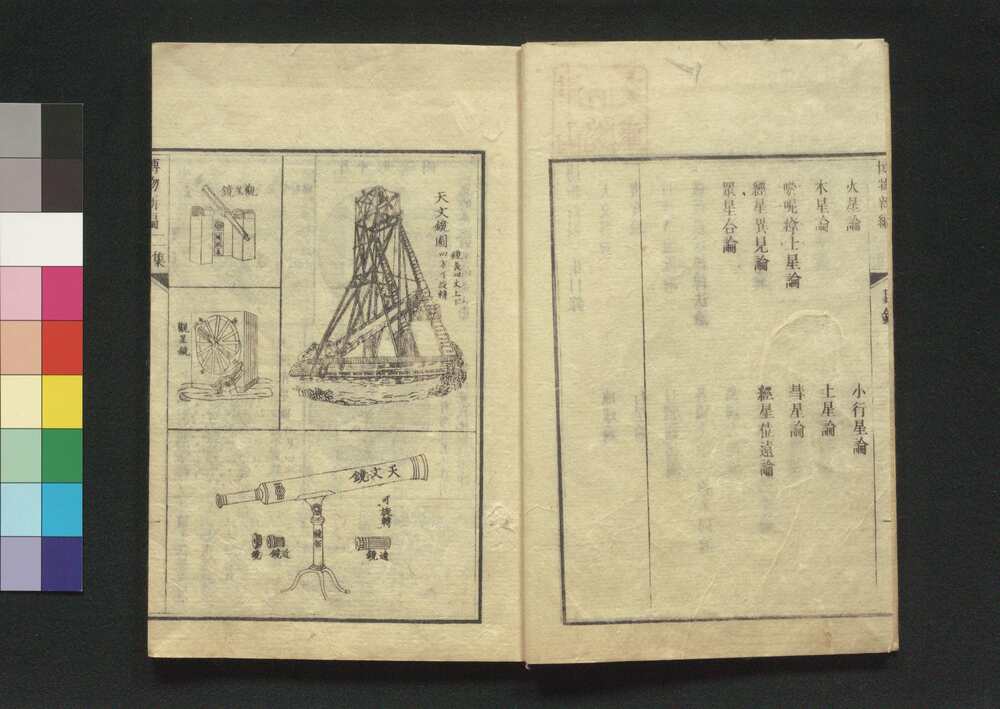 火星論
小行星論
木星論
土星論
呢咹士星論
彗星論
經星異見論
經星位遠論
眾星合論
目錄
博物新編
二集
天文鏡圖
鏡長四丈上下
四方可旋轉
觀星鏡
觀星鏡
天文鏡
可旋轉
鏡架
遠鏡
近鏡
鏡